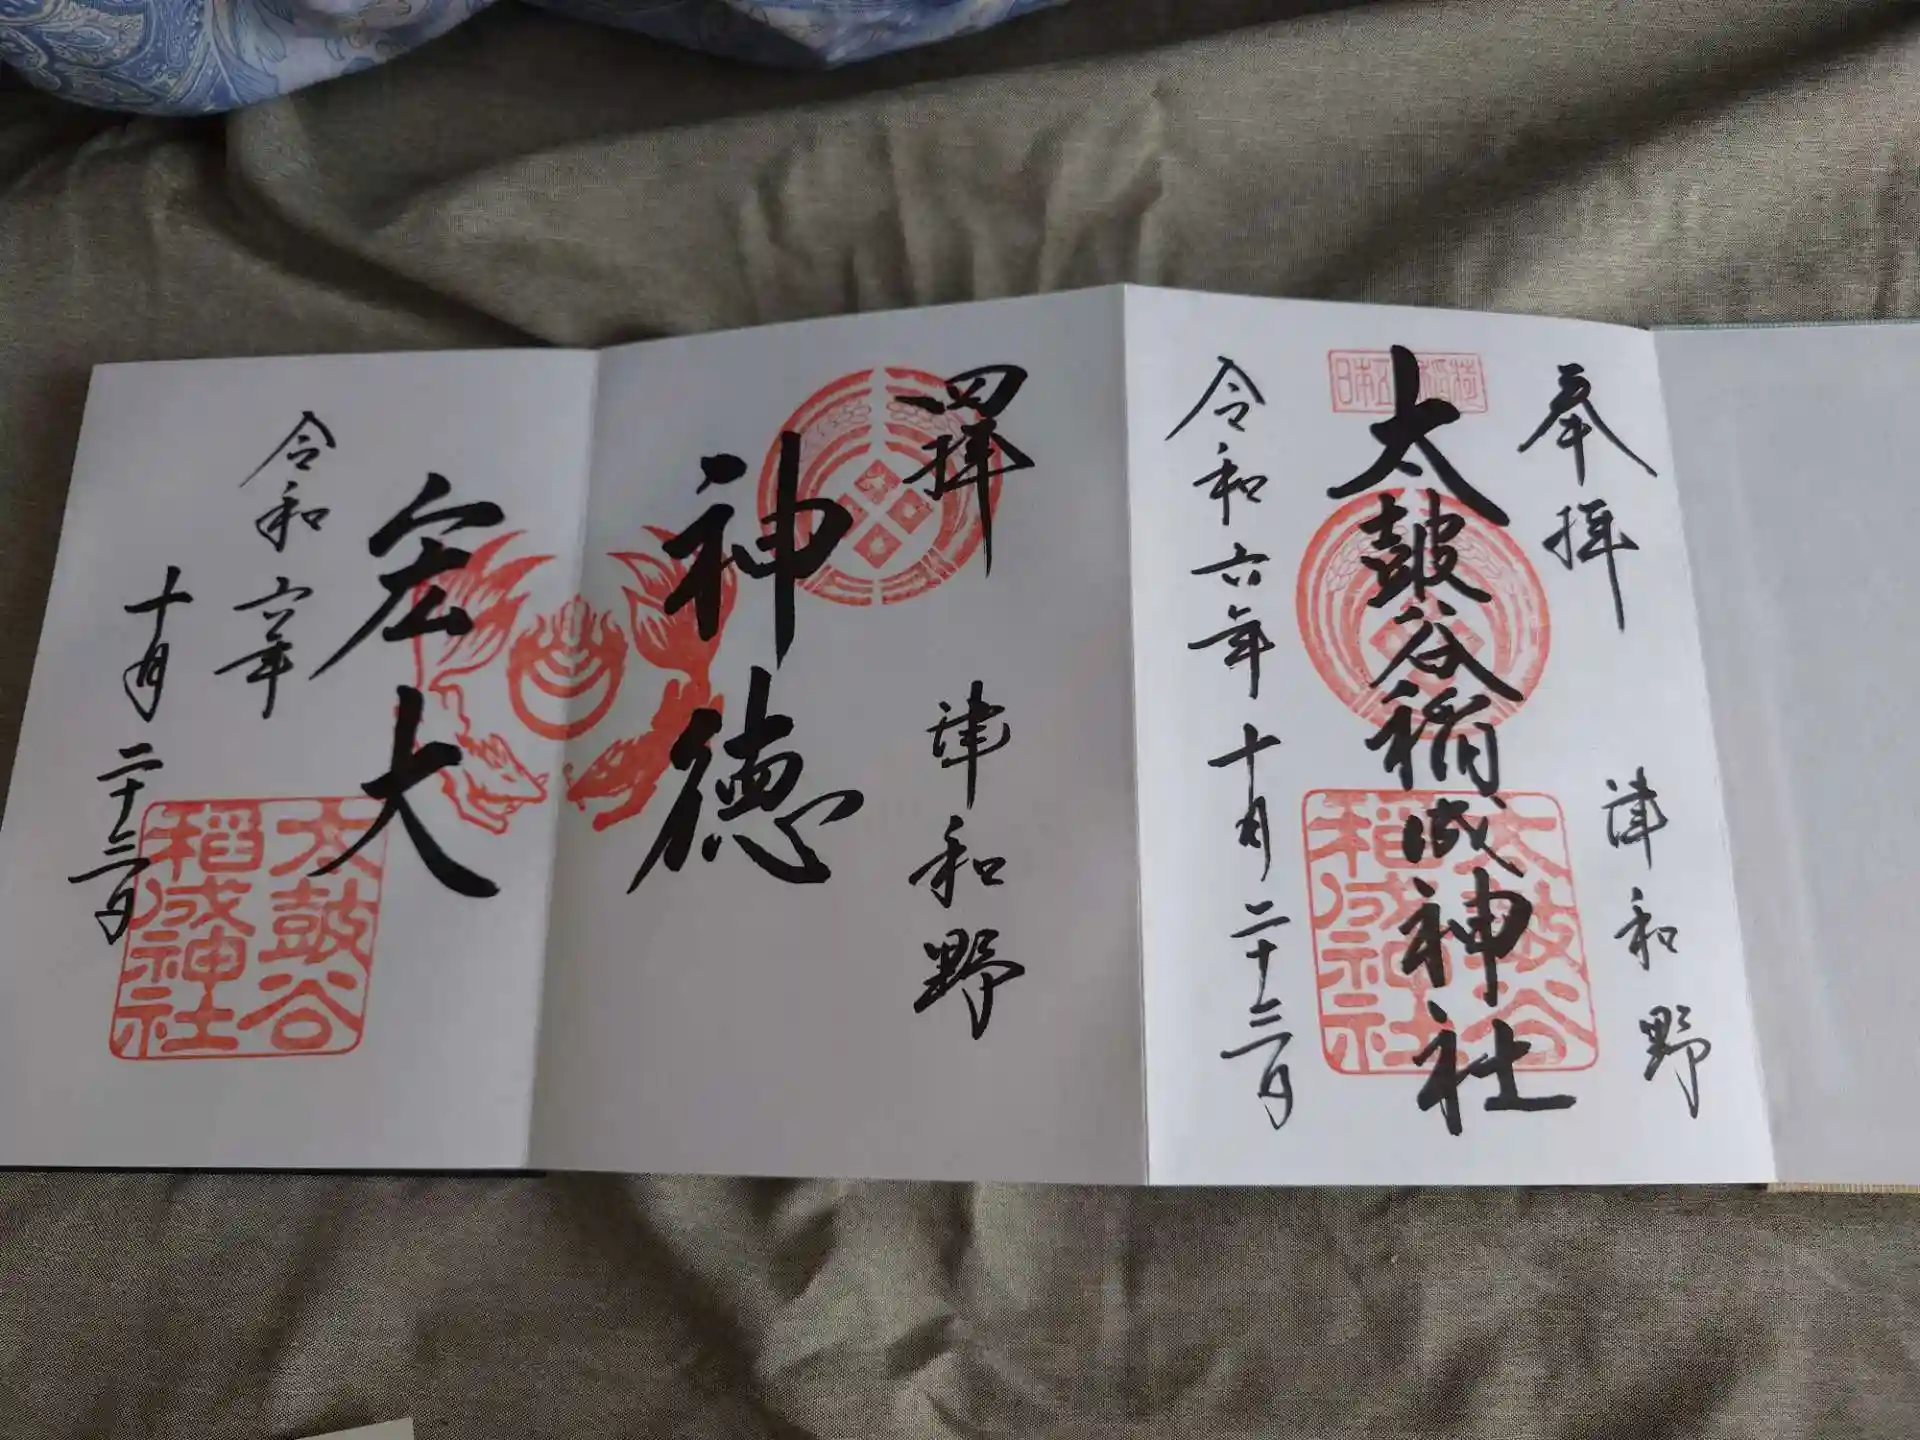 奉拝
津和野
太皷谷稲成神社
令和六年十月二十三日
太鼓谷
稲成神社
四拝
津和野
神徳
宏大
令和六年
十月二十三日
太鼓谷
稲成神社